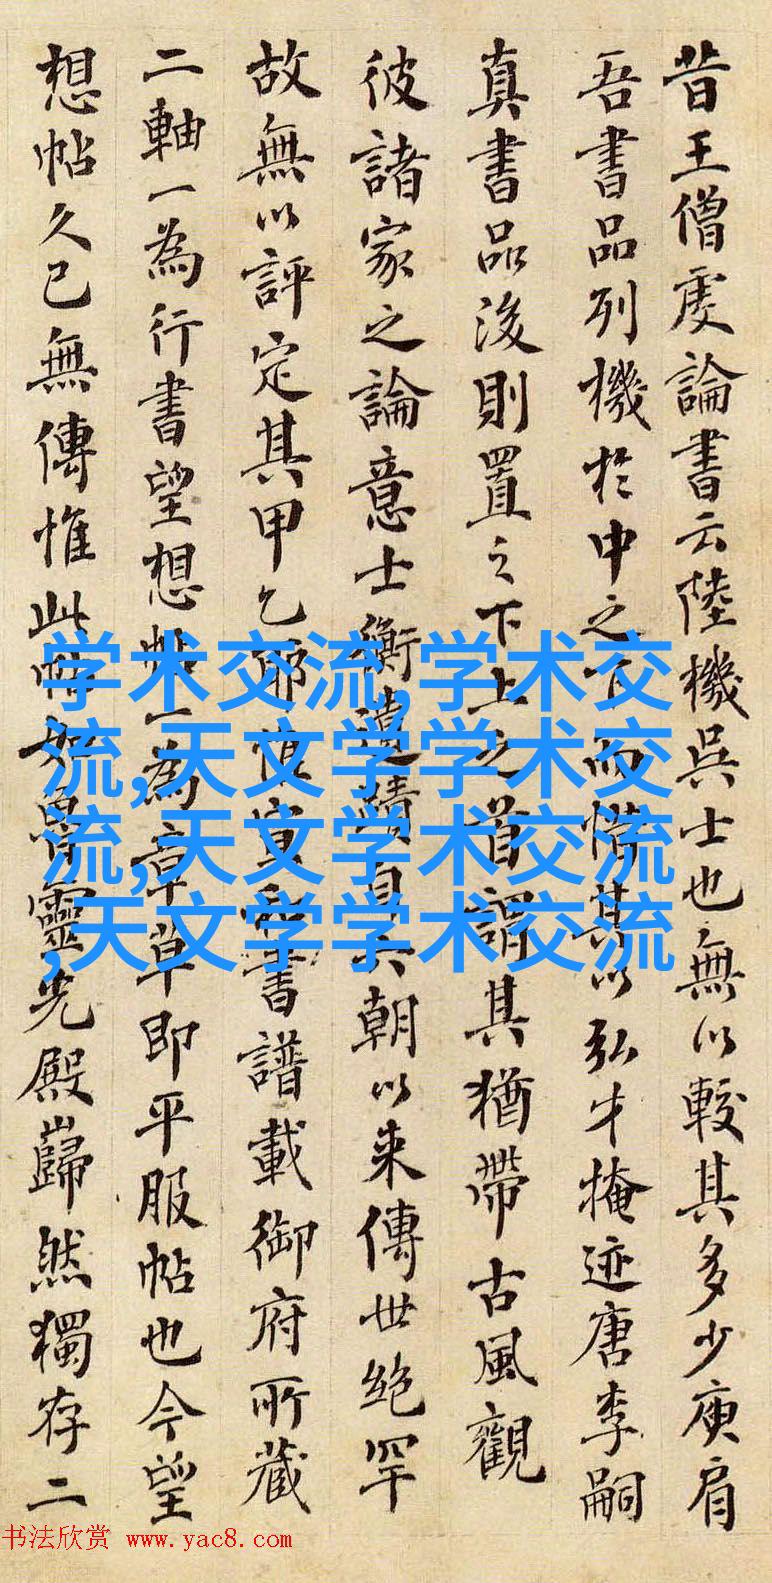 昔王僧虔論書云陸機吳士也無以較其多少庾肩
吾書品列機於中之下而惜其以弘才掩迹唐李嗣
真書品後則置之下上之首謂其猶帶古風觀
彼諸家之論意士衡遺蹟自六朝以来傳世絶罕
故無以評定其甲乙耶惟宣和書譜載御府所藏
二軸一為行書望想帖一為章草即平服帖也今望
想帖久已無傳惟此帖如魯靈光殿巋然獨存二
学术交流,学术交
流,天文学学术交
流,天文学学术交流
,天文学学术交流
书法欣赏 www.yac8.com